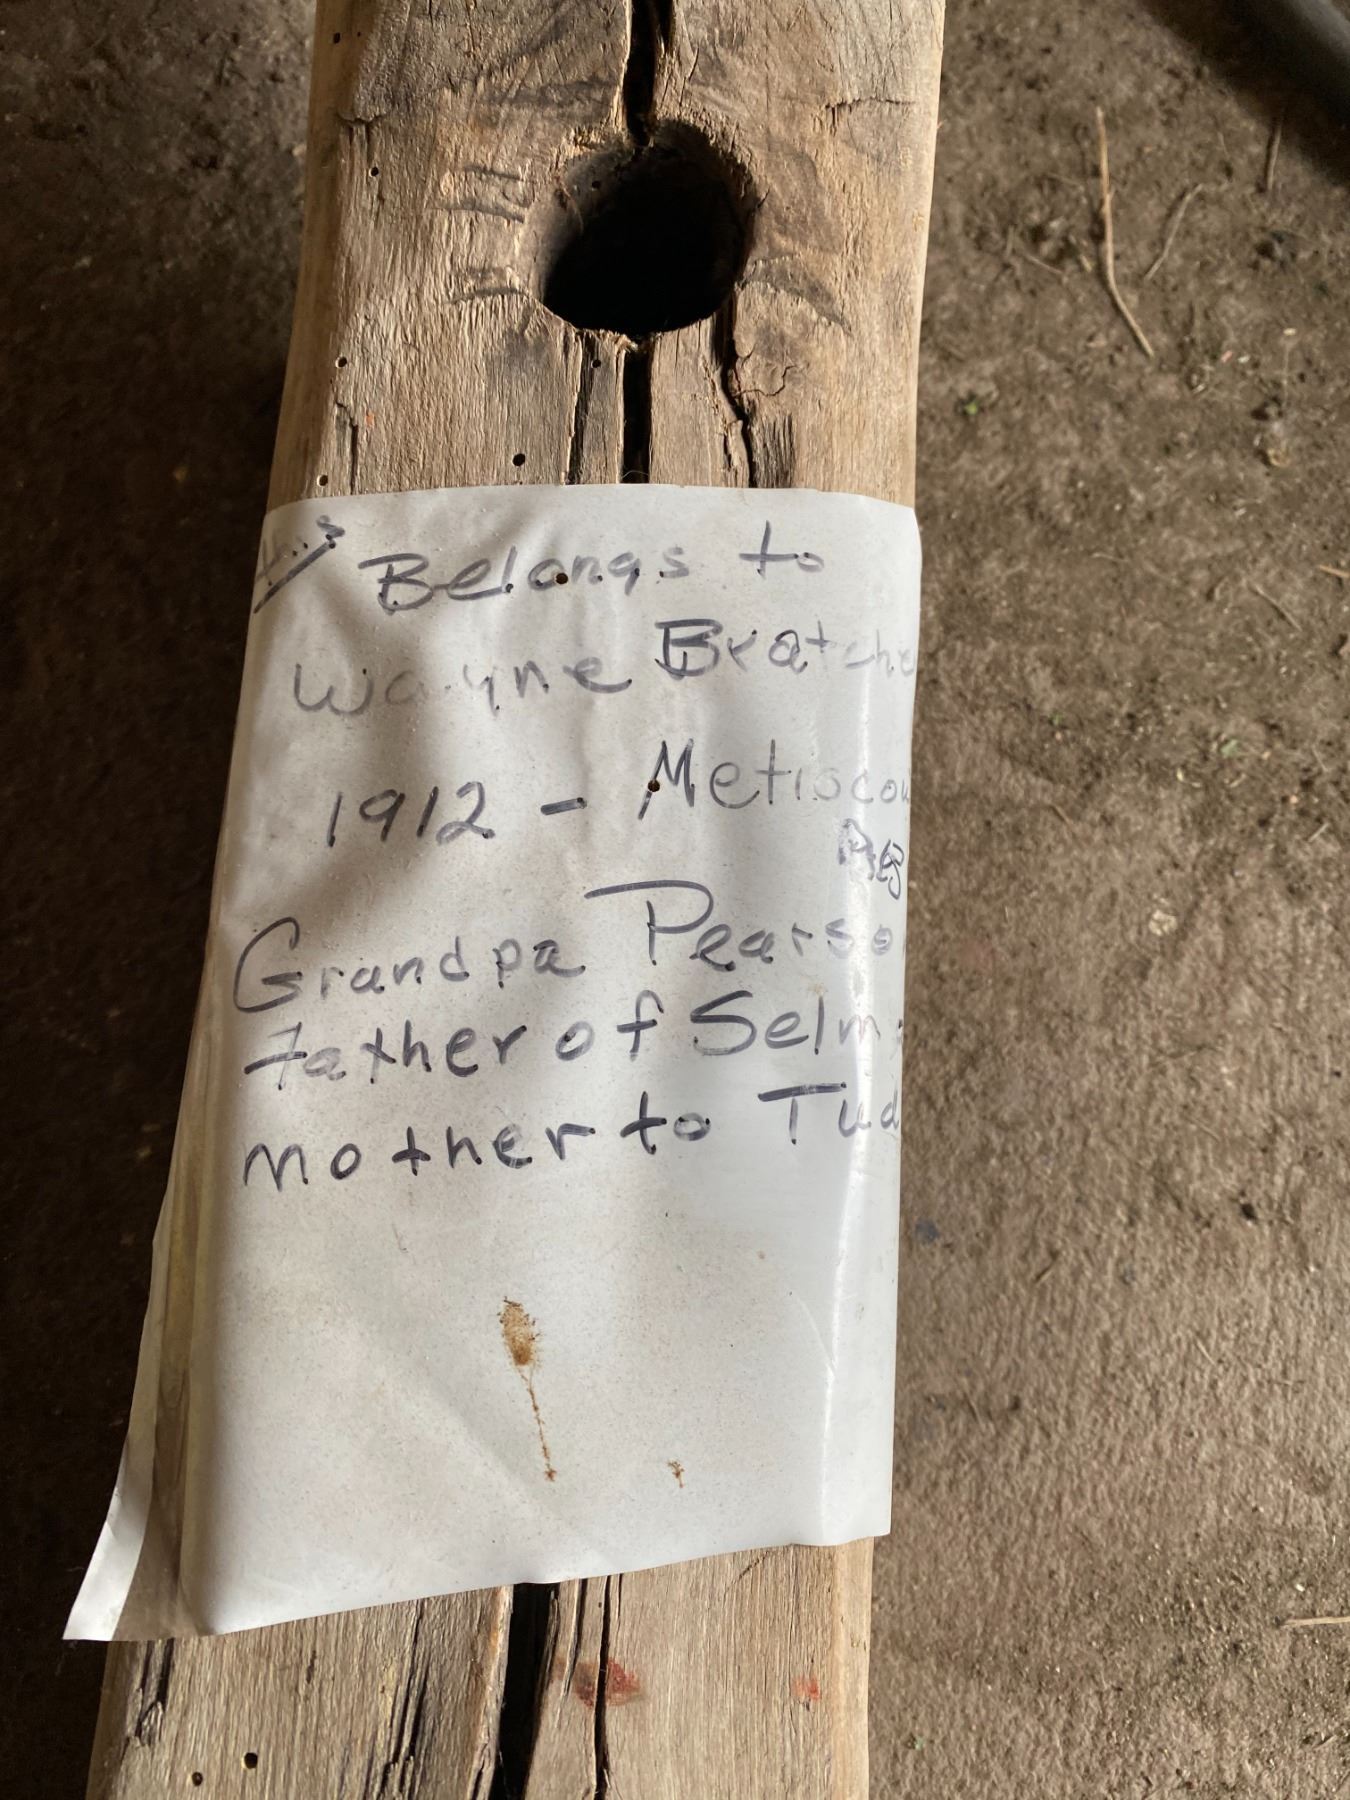 Belongs to
Wayne Bratche
1912 - Metiscow
AB
Grandpa Pearso
Father of Selm
mother to Tud